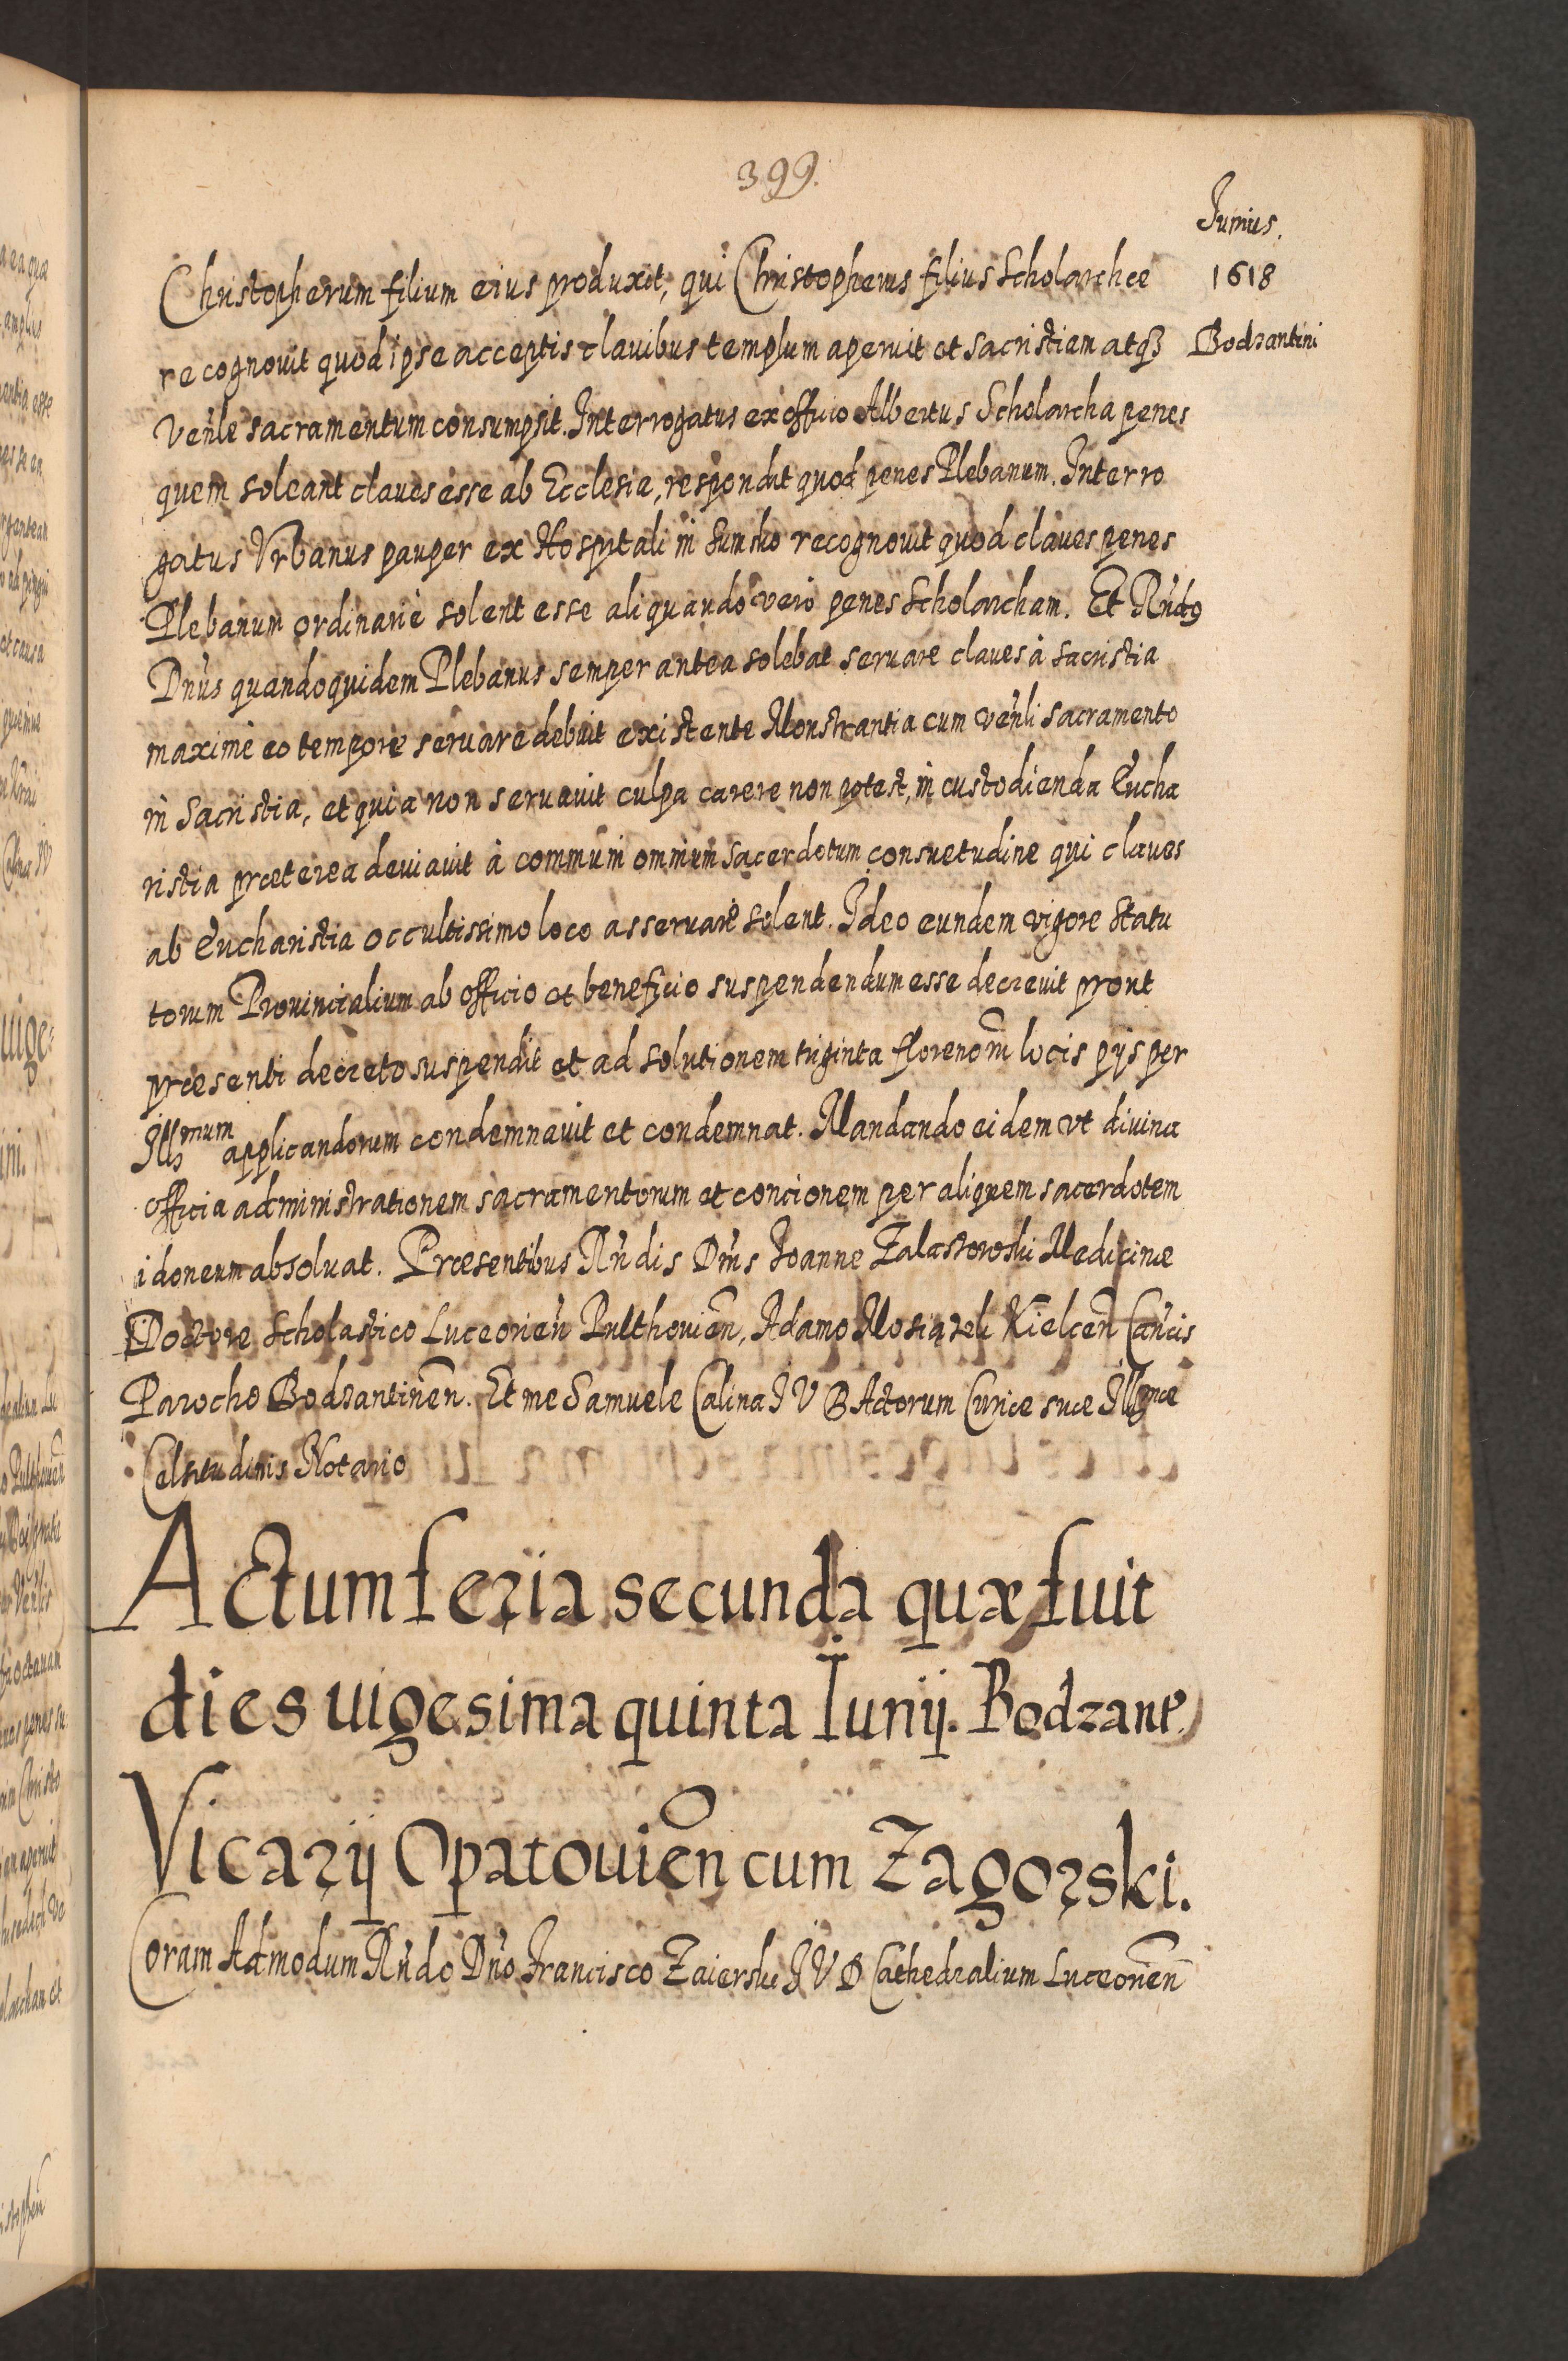 399.
Junius.
1618
Bodzantini
Christopherum filium eius produxit, qui Christopherus filius Scholarchæ
recognouit quod ipse acceptis clauibus templum aperuit et sacristiam atq3
Venle sacramentum consumpsit. Interrogatus ex officio Albertus Scholarcha penes
quem soleant claues esse ab Ecclesia, respondit quod penes Plebanum. Interro
gatus Vrbanus pauper ex Hospitali in recognouit quod claues penes
Plebanum ordinarie solent esse aliquando vero penes Scholarcham. Et Rndo
Dnus quandoquidem Plebanus semper antea solebat seruare claues à Sacristia
maxime eo tempore seruare debuit existente Monstrantia cum venli sacramento
in Sacristia, et quia non seruauit culpa carere non potest, in custodienda Eucha
ristia præterea deuiauit à communi omnium sacerdotum consuetudine qui claues
ab Eucharistia occultissimo loco asseruare solent. Ideo eundem vigore Statu
torum Prouincialium ab officio et beneficio suspendendum esse decreuit prout
præsenti decreto suspendit et ad solutionem triginta florenorm̃ locis pijs per
Illmum applicandorum condemnauit et condemnat. Mandando eidem vt diuina
officia administrationem sacramentorum et concionem per aliquem sacerdotem
idoneum absoluat. Præsentibus Rndis Dnis Joanne Medicinæ
Doctore Scholastico Luceorien̄ Pulthouien̄, Adamo Kielcen̄ Cancis
Parocho Bodzantinen̄. Et me Samuele Calina J V B Actorum Curiæ suæ Illmæ
Celsitudinis Notario
Actum feria secunda quæ fuit
dies uigesima quinta Iunij. Bodzane
Vicarij Opatouien̄ cum Zagorski.
Coram Admodum Rndo Dno Francisco Zaierski J V D Cathedralium Luceorien̄